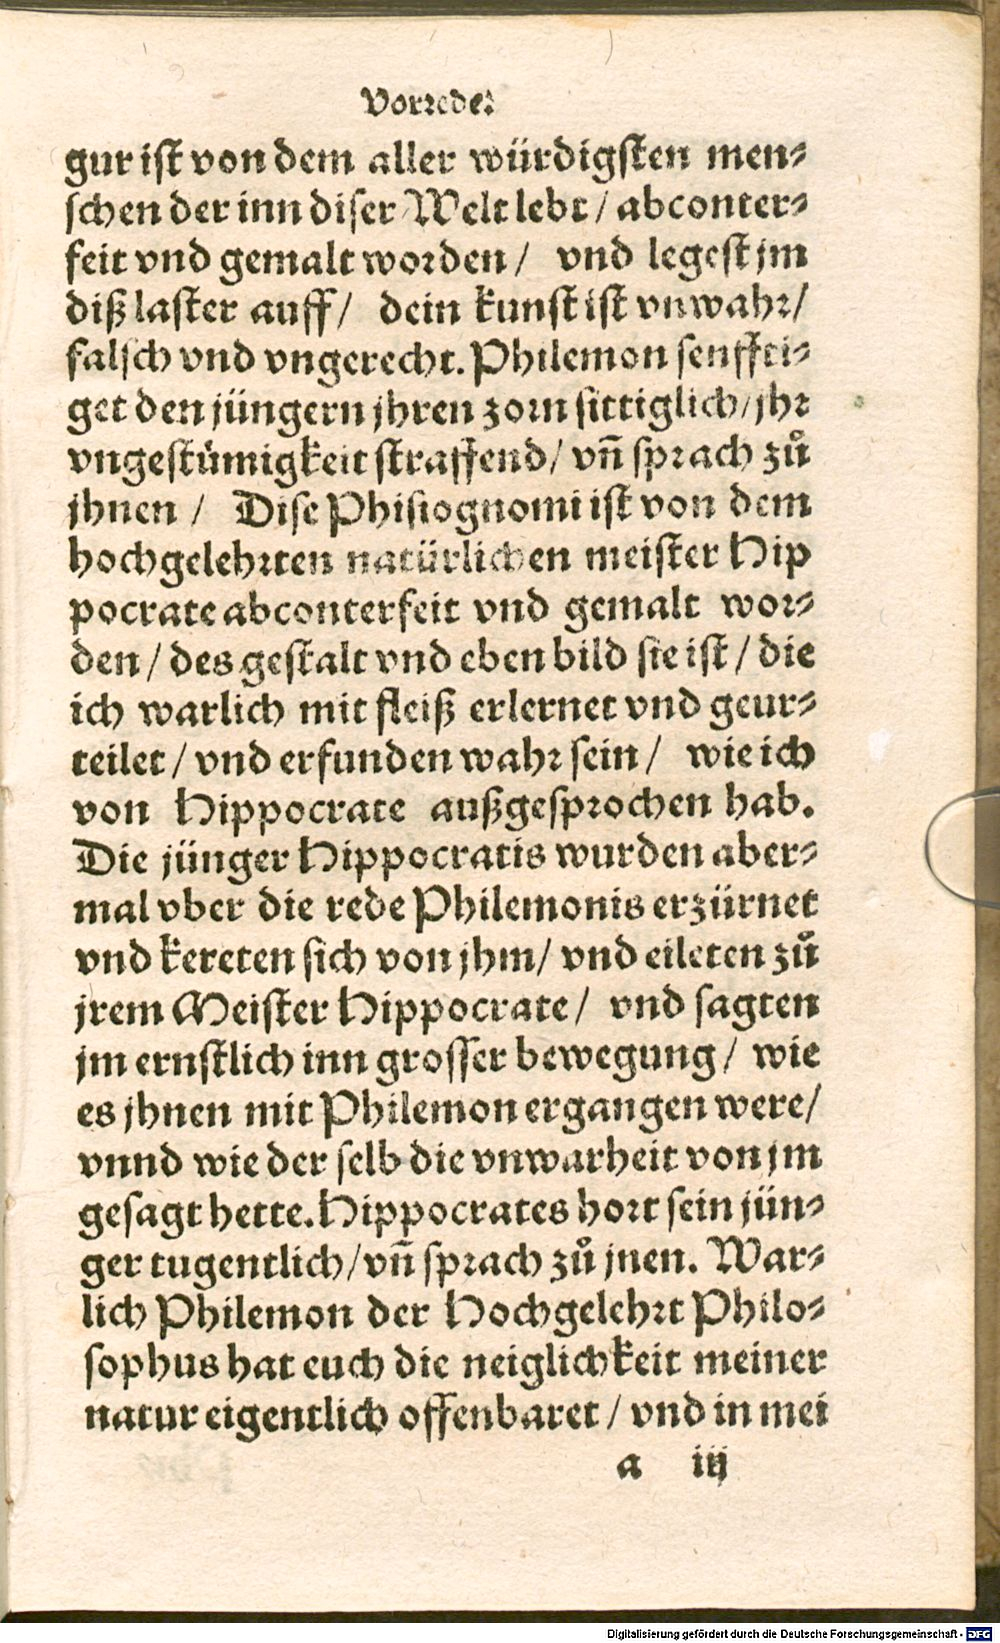 Vorrede.
gur ist von dem aller würdigsten men⸗
schen der inn diser Welt lebt / abconter⸗
feit vnd gemalt worden / vnd legest jm
diß laster auff / dein kunst ist vnwahr /
falsch vnd vngerecht. Philemon senffti⸗
get den jüngern jhren zorn sittiglich / jhr
vngestümigkeit straffend / vñ sprach zů
jhnen / Dise Phisiognomi ist von dem
hochgelehrten natürlichen meister Hip
pocrate abconterfeit vnd gemalt wor⸗
den / des gestalt vnd eben bild sie ist / die
ich warlich mit fleiß erlernet vnd geur⸗
teilet / vnd erfunden wahr sein / wie ich
von Hippocrate außgesprochen hab.
Die jünger Hippocratis wurden aber⸗
mal vber die rede Philemonis erzürnet
vnd kereten sich von jhm / vnd eileten zů
jrem Meister Hippocrate / vnd sagten
jm ernstlich inn grosser bewegung / wie
es jhnen mit Philemon ergangen were /
vnnd wie der selb die vnwarheit von jm
gesagt hette. Hippocrates hort sein jün⸗
ger tugentlich / vñ sprach zů jnen. War⸗
lich Philemon der Hochgelehrt Philo⸗
sophus hat euch die neiglichkeit meiner
natur eigentlich offenbaret / vnd in mei
a iij
Digitalisierung gefördert durch die Deutsche Forschungsgemeinschaft - DFG